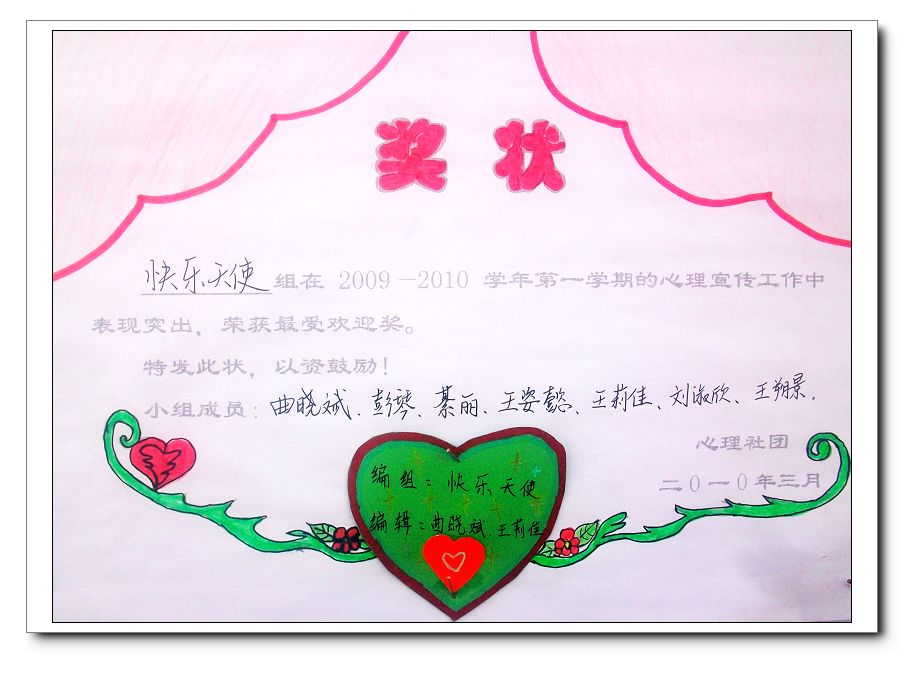 奖状
快乐天使组在2009—2010学年第一学期的心理宣传工作中
表现突出，荣获最受欢迎奖。
特发此状，以资鼓励！
小组成员：曲晓斌、彭琴、綦丽、王姿懿、王莉佳、刘淑欣、王朔景.
心理社团
二0一0年三月
编组：快乐天使
编辑：曲晓斌、王莉佳